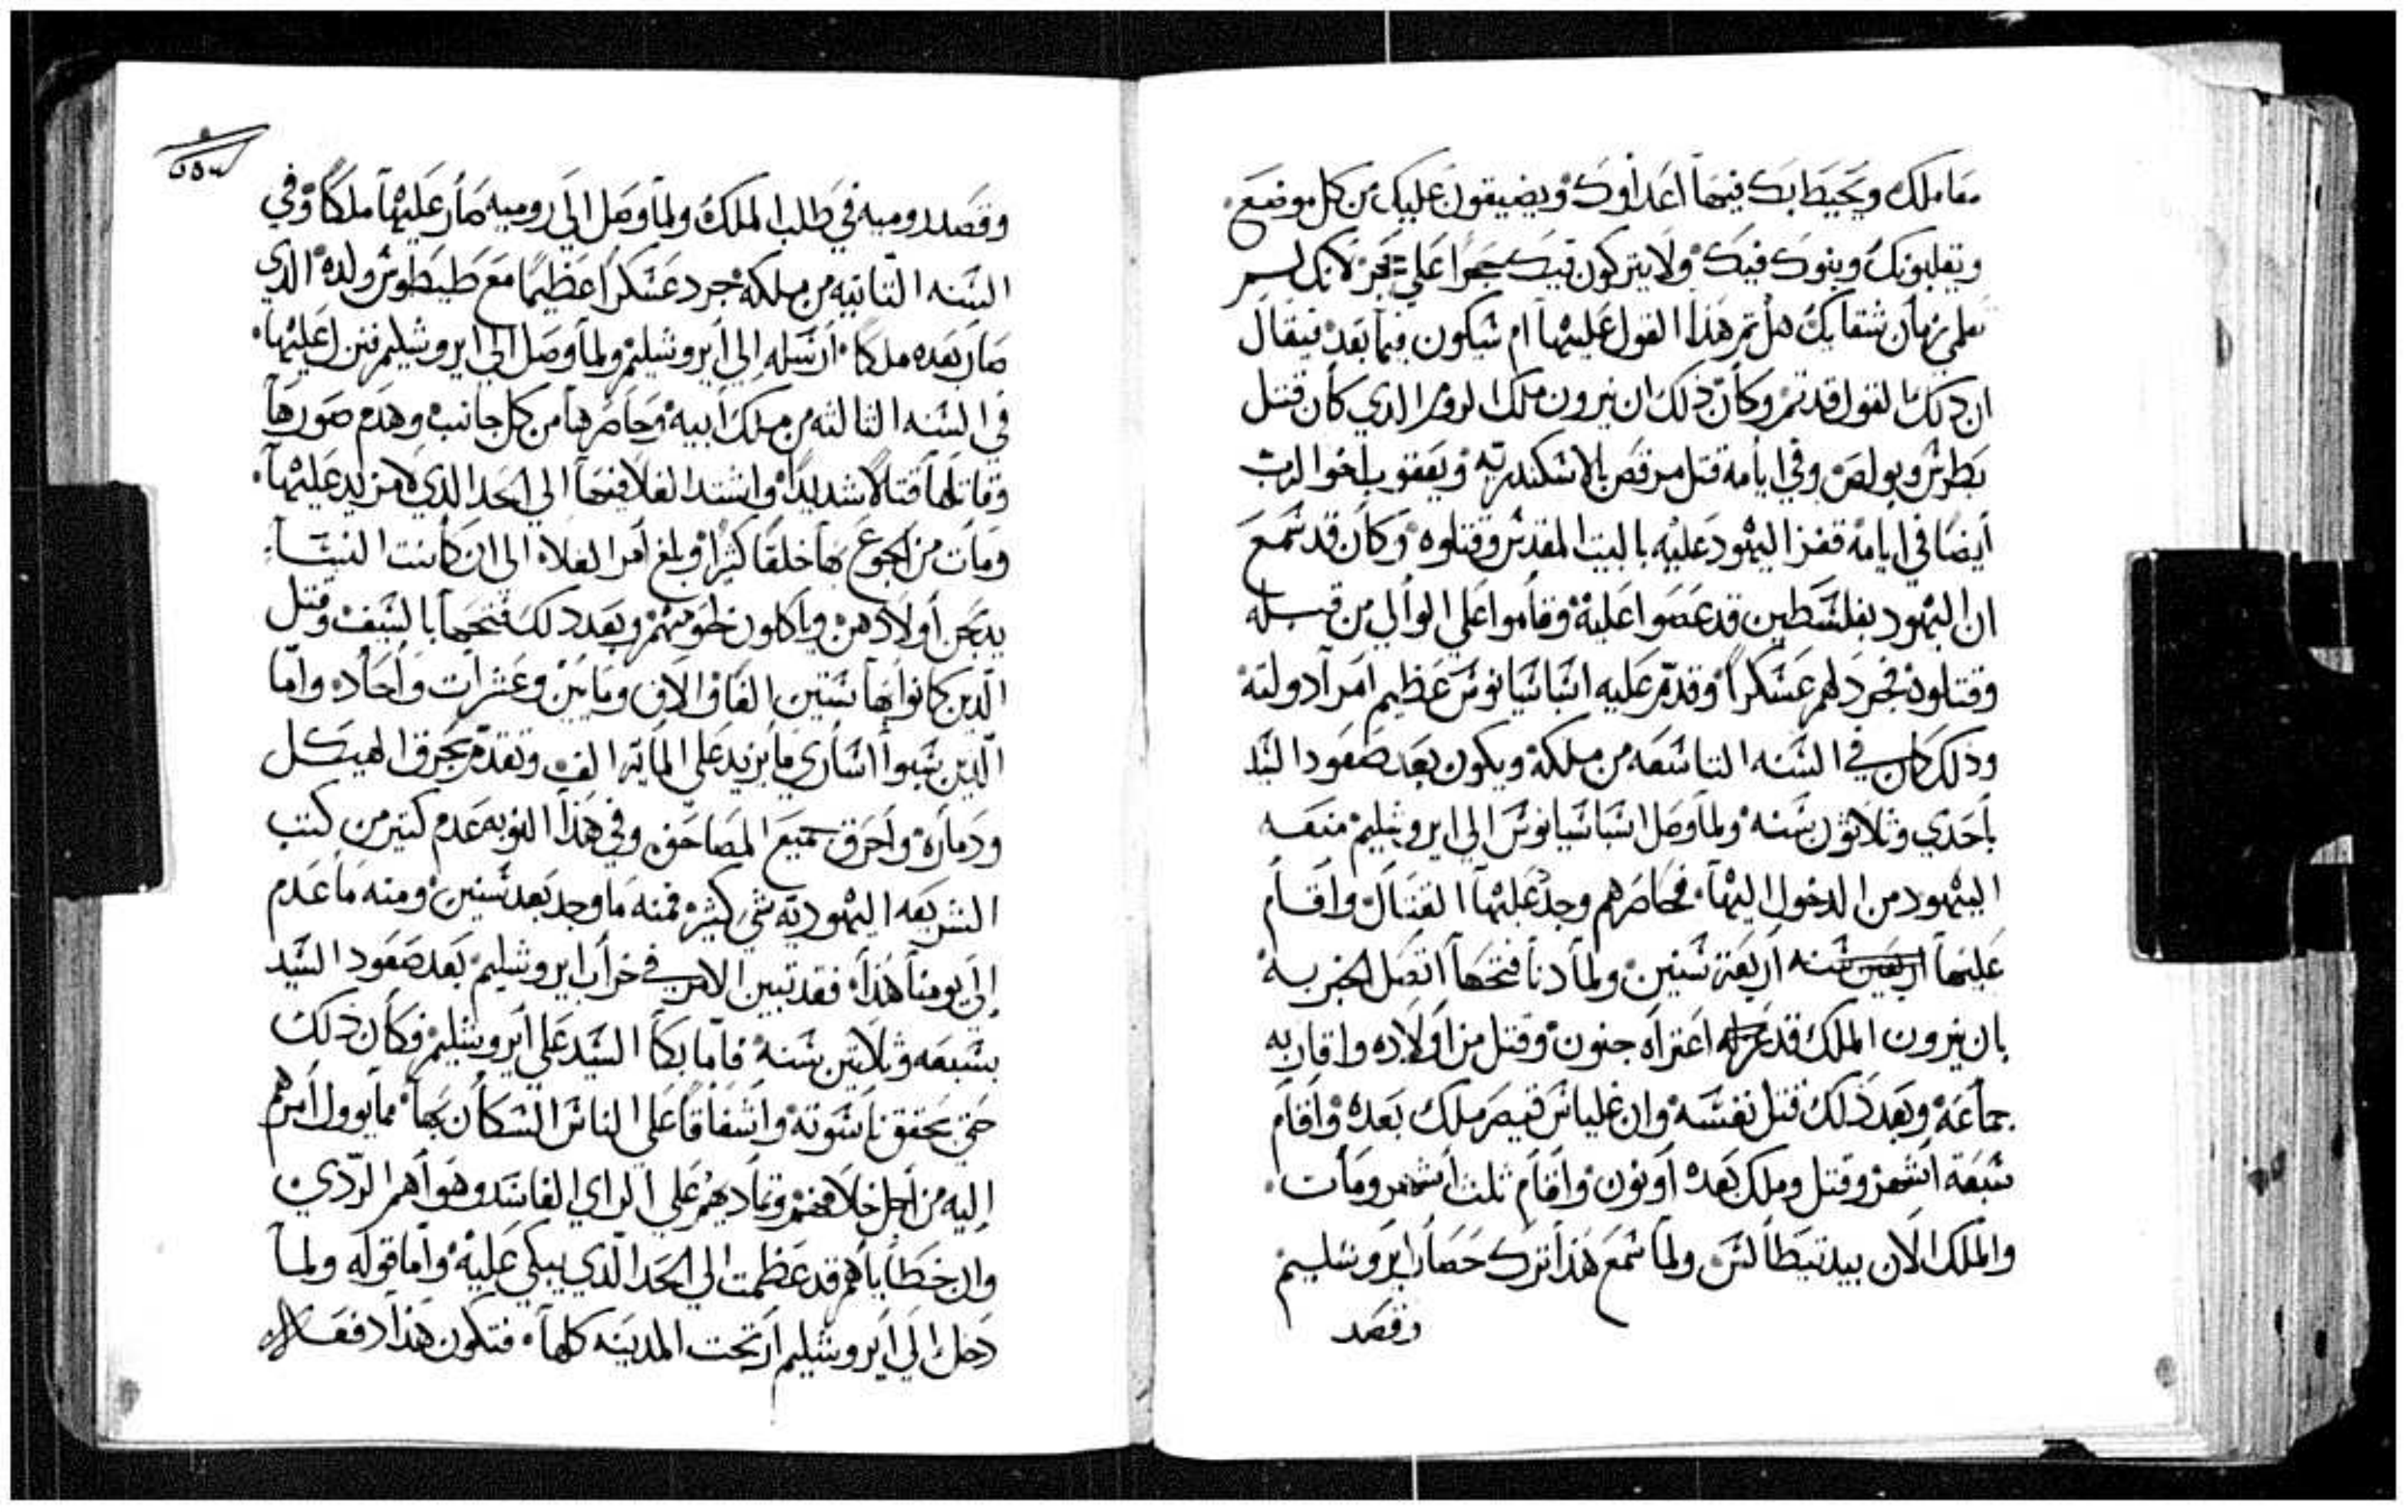 معاملك ويحيط بك فيها اعداوك ويضيقون عليك من كل موضع
ويقلبونك وبنوك فيك ولا يتركون فيك حجرا علي حجر لانك لم
تعلمي زمان شقايك هل تم هذا القول عليها ام سيكون فيما بعد فيقال
ان ذلك القول قد تم وكان ذلك ان نيرون ملك الروم الدي كان قتل
بطرس وبولص وفي ايامه قتل مرقص بالاسكندريه ويعقوب اخو الرب
أيضا في ايامه قفز اليهود عليه بالبيت المقدس وقتلوه وكان قد سمع
ان اليهود بفلسطين قد عصوا عليه وقاموا علي الوالي من قبله
وقتلوه فجرد لهم عسكرا وقدم عليه اسباسيانوس عظيم امرآ دولته
وذلك كان في السنه التاسعه من ملكه ويكون بعد صعود السيد
باحدي وثلاثون سنه ولما وصل اسباسيانوس الي ايروشليم منعه
اليهود من الدخول اليها فحاصرهم وجد عليها القتال واقام
عليها اربعين سنه اربعة سنين ولما دنا فتحها اتصل الخبر به
بان نيرون الملك قد اعتراه جنون وقتل من أولاده واقاربه
جماعة وبعد ذلك قتل نفسه وان غلياس قيصر ملك بعده واقام
سبعة اشهر وقتل وملك بعده اوتون واقام ثلث أشهر ومات
والملك الان بيد تيطالس ولما سمع هذا ترك حصار ايروشليم
وقصد
وقصد روميه في طلب الملك ولما وصل الي روميه صار عليها ملكا وفي
السنه الثانيه من ملكه جرد عسكرا عظيما مع طيطوس ولده الدي
صار بعده ملكا أرسله إلي أيروشليم ولما وصل الي ايروشليم فنزل عليها
في السنه الثالثه من ملك أبيه وحاصرها من كل جانب وهدم صورها
وقاتلها قتالا شديدا واشتد الغلا فيها الي الحد الذي لامزيد عليها
ومات من الجوع بها خلقا كثيرا وبلغ أمر الغلاء الي ان كانت النساء
يدبحن أولادهن وياكلون لحومهم وبعد ذلك فتحها بالسيف وقتل
الّدين كانوا بها ستين الفا والاف وماتين وعشرات وأحاد واما
الّدين سبوا اسارى ما يزيد علي الماية الف وتقدم بحرق الهيكل
ودماره وأحرق جميع المصاحف وفي هذا النوبه عدم كتير من كتب
الشريعه اليهودية شي كثير فمنه ما وجد بعد سنين ومنه ما عدم
إلي يومنا هذا فقد تبين الامر في خراب ايروشليم بعد صعود السيد
بسبعه وثلاثين سنه فاما بكآ السيد علي أيروشليم فكان ذلك
حتي يحقق ناسوته واشفاقا علي الناس السكان بها مما يوول أمرهم
إليه من أجل خلافهم وتماديهم علي الراي الفاسد وهواهم الردي
وان خطاياهم قد عظمت الي الحد الّدي يبكي عليه وأما قوله ولما
دخل إلي أيروشليم ارتجت المدينه كلها فتكون هذا دفعه